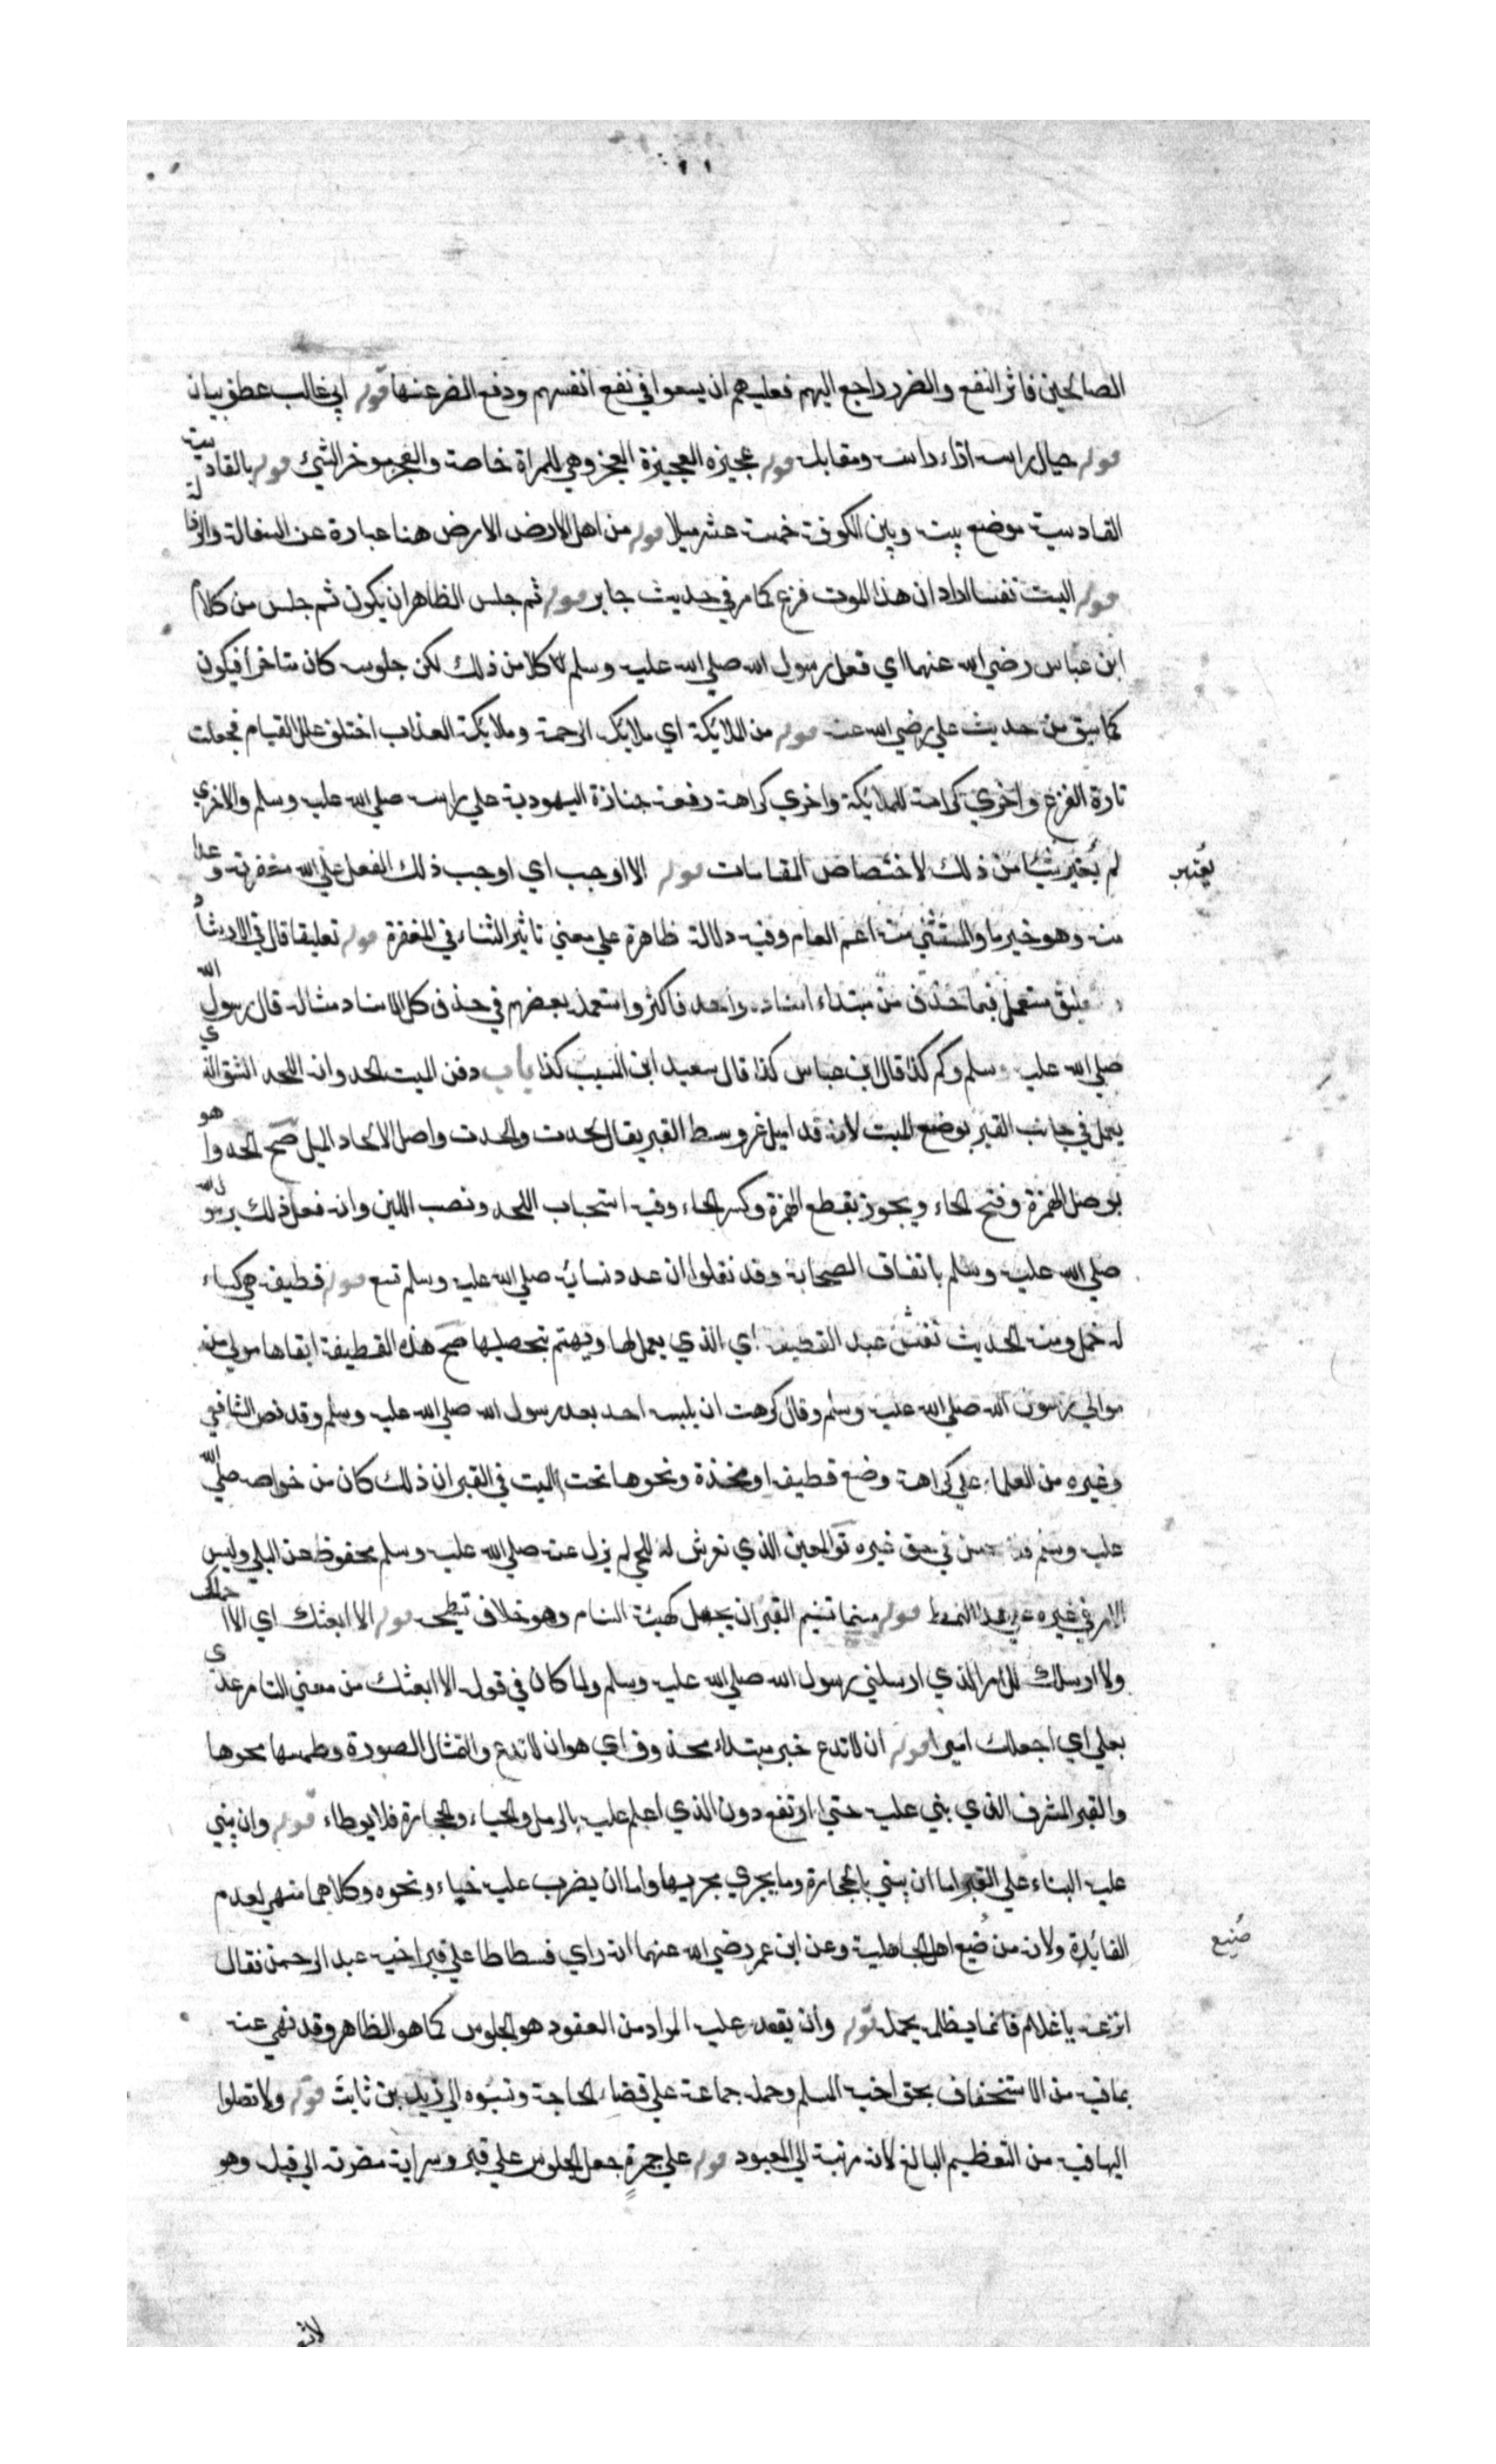 الصالحين فاثر النفع والضرر راجع اليهم فعليهم ان يسعوا في نفع انفسهم ودفع الضر عنها قوله ابي غالب عطف بيان
قوله حيال راسه اذاء راسه ومقابله قوله عجيزه العجيزة العجز وهي للمراة خاصة والعجز موخر الشئ قوله بالقادسية
القادسية موضع بينه وبين الكوفة خمسة عشر ميلا قوله من اهل الارض الارض هنا عبارة عن السفالة والرذالة
قوله اليست نفسا اراد ان هذا الموت فزع كما مر في حديث جابر قوله ثم جلس الظاهر ان يكون ثم جلس من كلام
ابن عباس رضي الله عنهما اي فعل رسول الله صلي الله عليه وسلم كلا من ذلك لكن جلوسه كان متاخرا فيكون
كما سبق من حديث علي رضي الله عنه قوله من الملائكة اي ملائكة الرحمة وملائكة العذاب اختلف علل القيام فجعلت
تارة الفزع واخري كراهة للملائكة واخري كراهة رفعة جنازة اليهودية علي راسه صلي الله عليه وسلم والاخري
لم يعتبر شيئا من ذلك لاختصاص المقامات قوله الا اوجب اي اوجب ذلك الفعل علي الله مغفرته وعدا
يعتبر
منه وهو خبر ما والمستثني منه اعم العام وفيه دلالة ظاهرة علي معني تاثير الثناء في المغفرة قوله تعليقا قال في الارشاد
التعليق مستعمل فيما حذف من مبتداء اسناده واحد فاكثر واستعمله بعضهم في حذف كل الاسناد مثاله قال رسول الله
صلي الله عليه وسلم وكم كذا قال ابن عباس كذا قال سعيد ابن المسيب كذا باب دفن الميت الحدوا اللحد الشق الذي
يعمل في جانب القبر بوضع الميت لانه قد اميل عن وسط القبر يقال لحدت والحدت واصل الالحاد الميل صح الحدوا هو
بوصل الهمزة وفتح الحاء ويجوز بقطع الهمزة وكسر الحاء وفيه استحباب اللحد ونصب اللبن وانه فعل ذلك برسول الله
صلي الله عليه وسلم باتفاق الصحابة وقد نقلوا ان عدد لبناته صلي الله عليه وسلم تسع قوله قطيفة هي كساء
له خمل ومنه الحديث تعس عبد القطيفة اي الذي يعمل لها ويهتم بتحصيلها صح هذه القطيفة القاها مولي من
موالي رسول الله صلي الله عليه وسلم وقال كرهت ان يلبسه احد بعد رسول الله صلي الله عليه وسلم وقد نص الشافعي
وغيره من العلماء علي كراهة وضع قطيفة او مخدة ونحوها تحت الميت في القبر ان ذلك كان من خواصه صلي الله
عليه وسلم فلا يحسن في حق غيره تو المعين الذي نفرش له للحي لم يزل عنه صلي الله عليه وسلم محفوظ عن البلي وليس
الامر في غيره علي هذا النمط قوله مسنما تسنيم القبر ان يجعل كهيئة السنام وهو خلاف تسطيحه قوله الا ابعثك اي الا
ولا ارسلك للامر الذي ارسلني رسول الله صلي الله عليه وسلم ولما كان في قوله الا ابعثك من معني التامر عدي
بعلي اي اجعلك اميرا قوله ان لا تدع خبر مبتداء محذوف اي هو ان لا تدع والتمثال الصورة وطمسها محوها
والقبر المشرف الذي بني عليه حتي ارتفع دون الذي اعلم عليه بالرمل والحصباء والحجارة فلا يوطاء قوله وان يبني
عليه البناء علي القبر اما ان يبني بالحجارة وما يجري مجريها واما ان يضرب عليه خباء ونحوه وكلاهما منهي لعدم
الفائدة ولانه من صنيع اهل الجاهلية وعن ابن عمر رضي الله عنهما انه راي فسطاطا علي قبر اخيه عبد الرحمن فقال
صنيع
انزعه يا غلام فانما يظله عمله قوله وان يقعد عليه المراد من القعود هو الجلوس كما هو الظاهر وقد نهي عنه
بما فيه من الاستخفاف بحق اخيه المسلم وحمله جماعة علي قضاء الحاجة ونسبوه الي زيد بن ثابت قوله ولا تصلوا
اليها فيه من التعظيم البالغ لانه مرتبة الي المعبود قوله علي جمرة جعل الجلوس علي قبر وسراية مضرته الي قلبه وهو